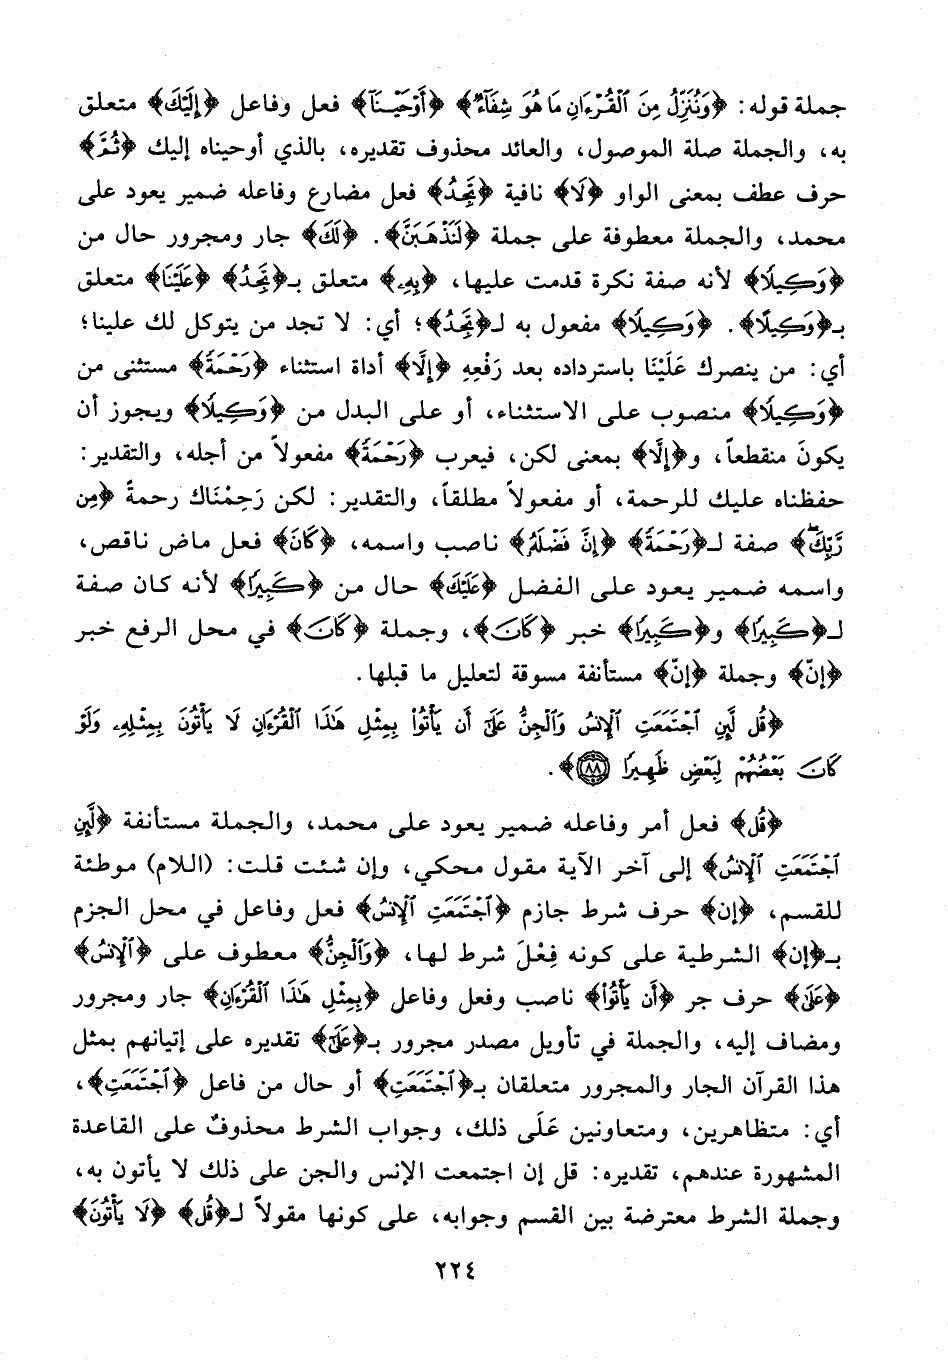 جملة قوله: ﴿وَنُنَزِّلُ مِنَ ٱلْقُرْءَانِ مَا هُوَ شِفَآءٌ﴾ ﴿أَوْحَيْنَآ﴾ فعل وفاعل ﴿إِلَيْكَ﴾ متعلق
به، والجملة صلة الموصول، والعائد محذوف تقديره، بالذي أوحيناه إليك ﴿ثُمَّ﴾
حرف عطف بمعنى الواو ﴿لَا﴾ نافية ﴿تَجِدُ﴾ فعل مضارع وفاعله ضمير يعود على
محمد، والجملة معطوفة على جملة ﴿لَنَذْهَبَنَّ﴾. ﴿لَكَ﴾ جار ومجرور حال من
﴿وَكِيلًا﴾ لأنه صفة نكرة قدمت عليها، ﴿بِهِۦ﴾ متعلق بـ﴿تَجِدُ﴾ ﴿عَلَيْنَا﴾ متعلق
بـ﴿وَكِيلًا﴾. ﴿وَكِيلًا﴾ مفعول به لـ﴿تَجِدُ﴾؛ أي: لا تجد من يتوكل لك علينا؛
أي: من ينصرك عَلَيْنَا باسترداده بعد رَفْعِهِ ﴿إِلَّا﴾ أداة استثناء ﴿رَحْمَةً﴾ مستثنى من
﴿وَكِيلًا﴾ منصوب على الاستثناء، أو على البدل من ﴿وَكِيلًا﴾ ويجوز أن
يكونَ منقطعاً، و﴿إِلَّا﴾ بمعنى لكن، فيعرب ﴿رَحْمَةً﴾ مفعولاً من أجله، والتقدير:
حفظناه عليك للرحمة، أو مفعولاً مطلقاً، والتقدير: لكن رَحِمْنَاك رحمةً ﴿مِن
رَّبِّكَ﴾ صفة لـ﴿رَحْمَةً﴾ ﴿إِنَّ فَضْلَهُۥ﴾ ناصب واسمه، ﴿كَانَ﴾ فعل ماض ناقص،
واسمه ضمير يعود على الفضل ﴿عَلَيْكَ﴾ حال من ﴿كَبِيرًا﴾ لأنه كان صفة
لـ﴿كَبِيرًا﴾ و﴿كَبِيرًا﴾ خبر ﴿كَانَ﴾، وجملة ﴿كَانَ﴾ في محل الرفع خبر
﴿إنّ﴾ وجملة ﴿إنّ﴾ مستأنفة مسوقة لتعليل ما قبلها.
﴿قُل لَّئِنِ ٱجْتَمَعَتِ ٱلْإِنسُ وَٱلْجِنُّ عَلَىٰٓ أَن يَأْتُوا۟ بِمِثْلِ هَٰذَا ٱلْقُرْءَانِ لَا يَأْتُونَ بِمِثْلِهِۦ وَلَوْ
كَانَ بَعْضُهُمْ لِبَعْضٍ ظَهِيرًا ٨٨﴾.
﴿قُل﴾ فعل أمر وفاعله ضمير يعود على محمد، والجملة مستأنفة ﴿لَّئِنِ
ٱجْتَمَعَتِ ٱلْإِنسُ﴾ إلى آخر الآية مقول محكي، وإن شئت قلت: (اللام) موطئة
للقسم، ﴿إن﴾ حرف شرط جازم ﴿ٱجْتَمَعَتِ ٱلْإِنسُ﴾ فعل وفاعل في محل الجزم
بـ﴿إن﴾ الشرطية على كونه فِعْلَ شرط لها، ﴿وَٱلْجِنُّ﴾ معطوف على ﴿ٱلْإِنسُ﴾
﴿عَلَىٰٓ﴾ حرف جر ﴿أَن يَأْتُوا۟﴾ ناصب وفعل وفاعل ﴿بِمِثْلِ هَٰذَا ٱلْقُرْءَانِ﴾ جار ومجرور
ومضاف إليه، والجملة في تأويل مصدر مجرور بـ﴿عَلَىٰٓ﴾ تقديره على إتيانهم بمثل
هذا القرآن الجار والمجرور متعلقان بـ﴿ٱجْتَمَعَتِ﴾ أو حال من فاعل ﴿ٱجْتَمَعَتِ﴾،
أي: متظاهرين، ومتعاونين عَلَى ذلك، وجواب الشرط محذوفٌ على القاعدة
المشهورة عندهم، تقديره: قل إن اجتمعت الإنس والجن على ذلك لا يأتون به،
وجملة الشرط معترضة بين القسم وجوابه، على كونها مقولاً لـ﴿قُل﴾ ﴿لَا يَأْتُونَ﴾
٢٢٤